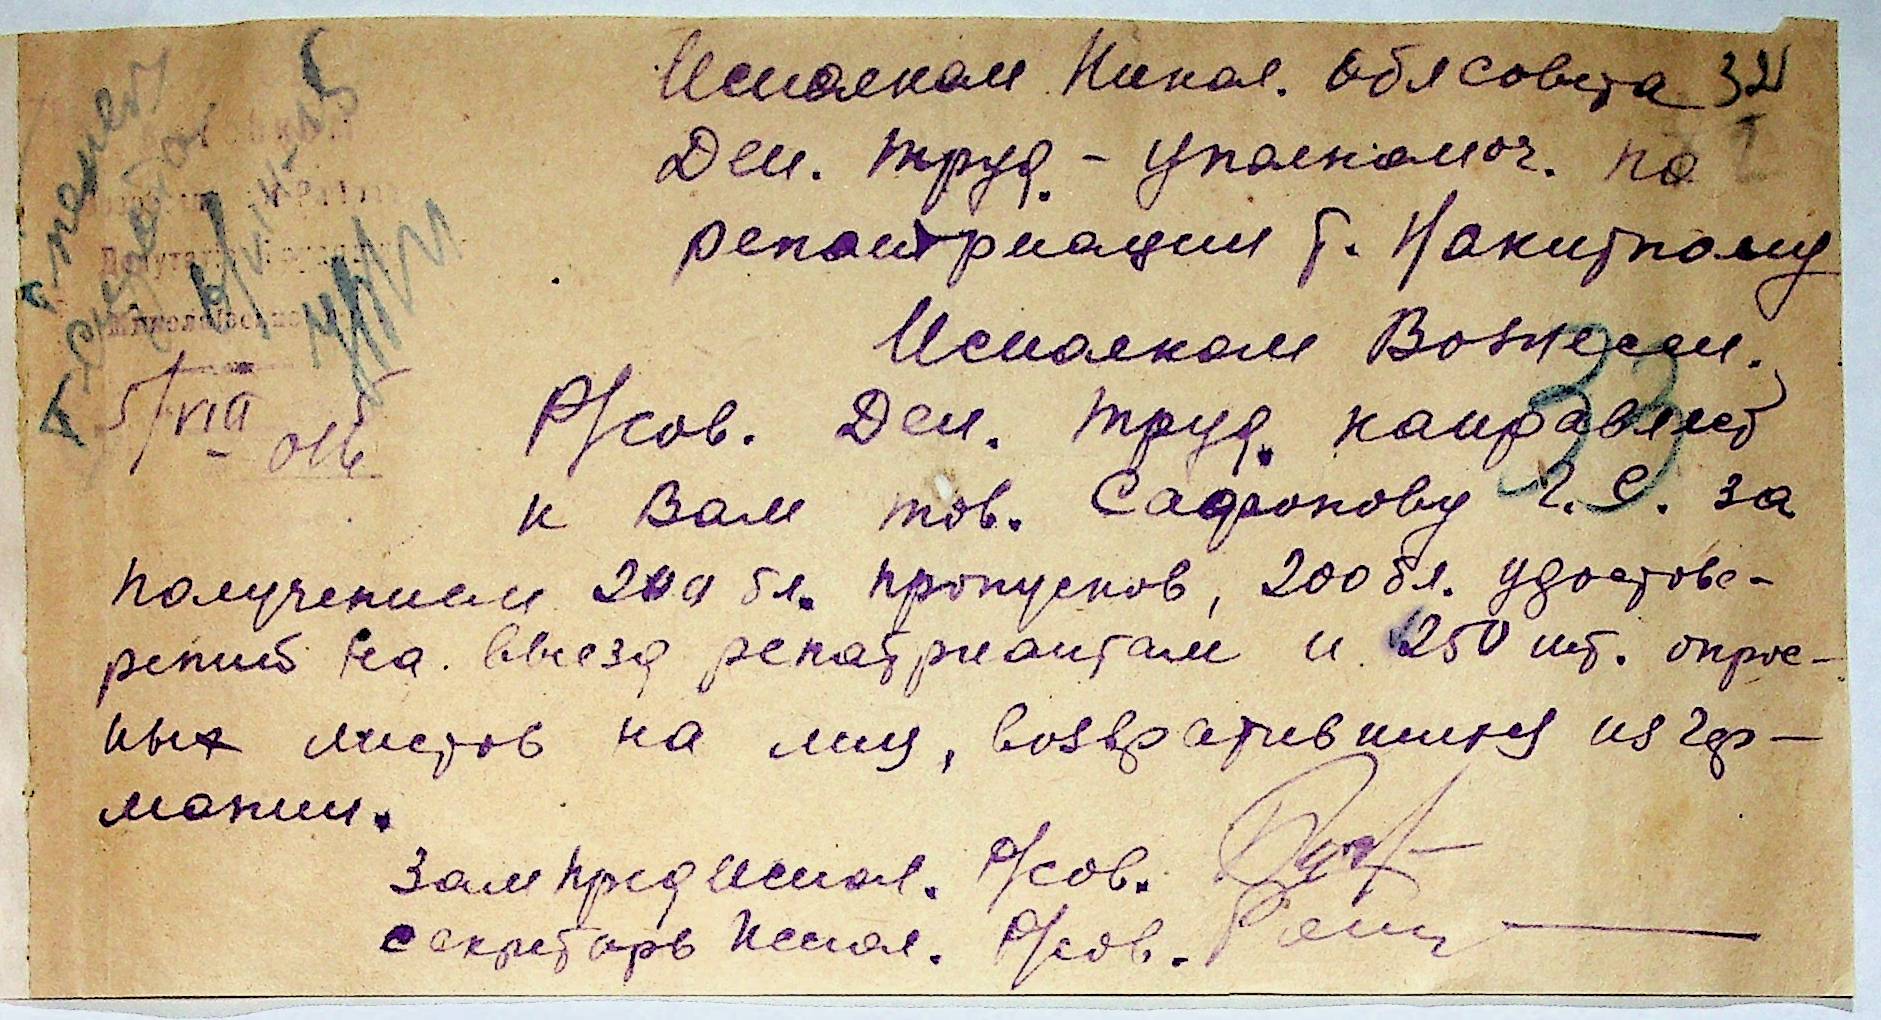 Исполком Никол. Облсовета 32
Деп. труд – уполномоч. по
репатриации т. Накитному
Исполком Вознесен.
33
Р/сов. Деп. труд. направляет
5/VIII
к Вам тов. Сафонову Г. С. за
получением 200 бл. пропусков, 200 бл. удостове-
рений на въезд репатриантам и 250 шт. опрос-
ных листов на лиц, возвратившихся из Гер-
мании.
Зампред Испол. Р/сов.
секретарь Испол. Р/сов.